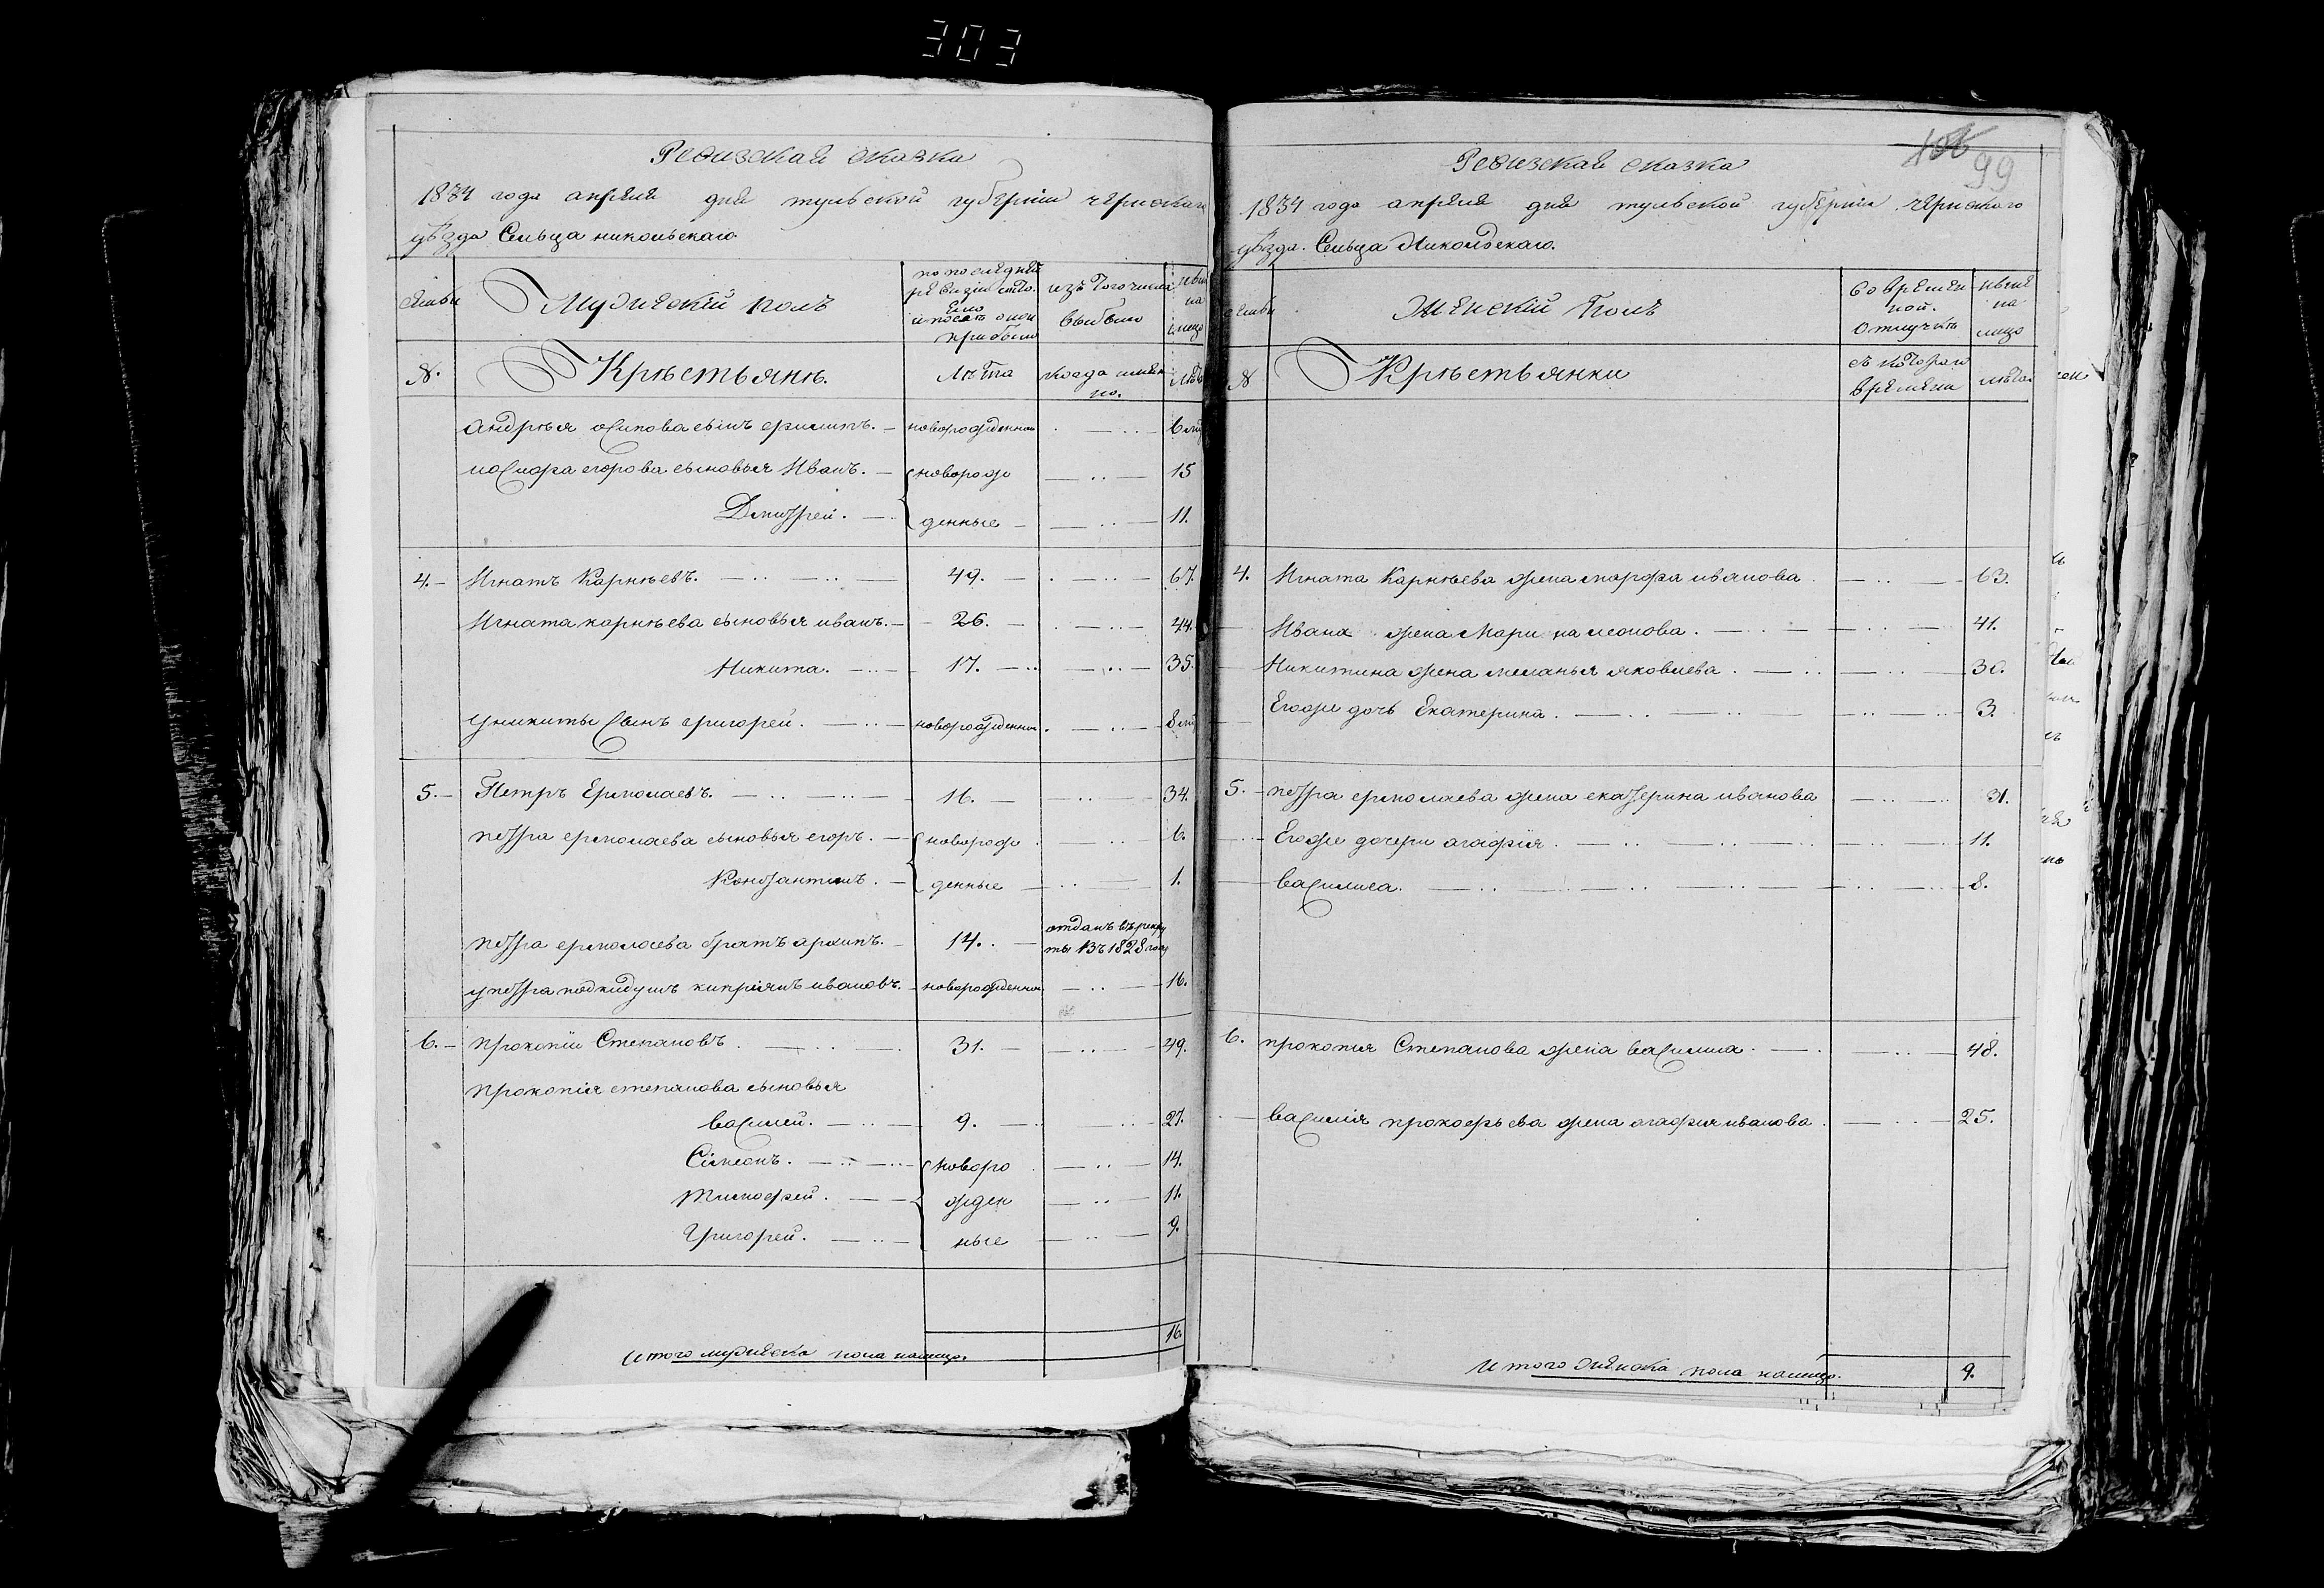 303
Ревизская сказка
1834 года апреля дня тульской губернiи чернскаго
уѣзда Сельца никольскаго
семьи
Мужескiй полъ
по последней ревизiи состояло и после оной прибыло
изъ того числа выбыло
ныне на лицо
№.
Крѣстьянѣ.
Лѣта
когда именно.
Лѣта
андрѣя осипова сынъ филипъ. новорожденной 6 мѣ
егорова сыновья Иванъ. новорож 15
Дмитрей. денные 11.
4. Игнатъ Карнѣевъ. 49. 67.
Игната карнѣева сыновья иванъ. 26. 44.
Никита. 17. 35.
уникиты сынъ григорей. новорожденной. 8 мѣ
5. Петръ Ермолаевъ. 16. 34.
петра ермолаева сыновья егоръ. новорож 6.
Констянтинъ. денные 1.
петра ермолаева братъ архипъ. 14. отданъ въ рекру
ты въ 1828 году
упетра подкидушъ кипріянъ ивановъ. новорожденной 16.
6. прокопiй Степановъ 31. 49.
прокопiя степанова сыновья
василей. 9. 27.
Сiмеонъ. новоро 14.
Тимофей. жден 11.
Григорей. ные 9.
16.
Итого мужеска пола налицо.
99
Ревизская сказка
1834 года апреля дня тульской губернiи чернскаго
уѣзда. Сельца Никольскаго.
семьи
Женскiй Полъ
во временной. отлучкѣ
ныне на лицо
№
Крѣстьянки
съ котораго времени
лѣта
4. Игната Карнѣева жена марфа иванова 63.
Ивана жена Марина леонова. 41.
Никитина жена меланья яковлева. 30.
Егоже дочь Екатерина. 3.
5. петра ермолаева жена екатерина иванова 31.
Егоже дочери агафiя. 11.
василиса. 8.
6. прокопия Степанова жена василиса. 48.
василiя прокофьева жена агафия иванова. 25.
Итого женска пола налицо. 9.